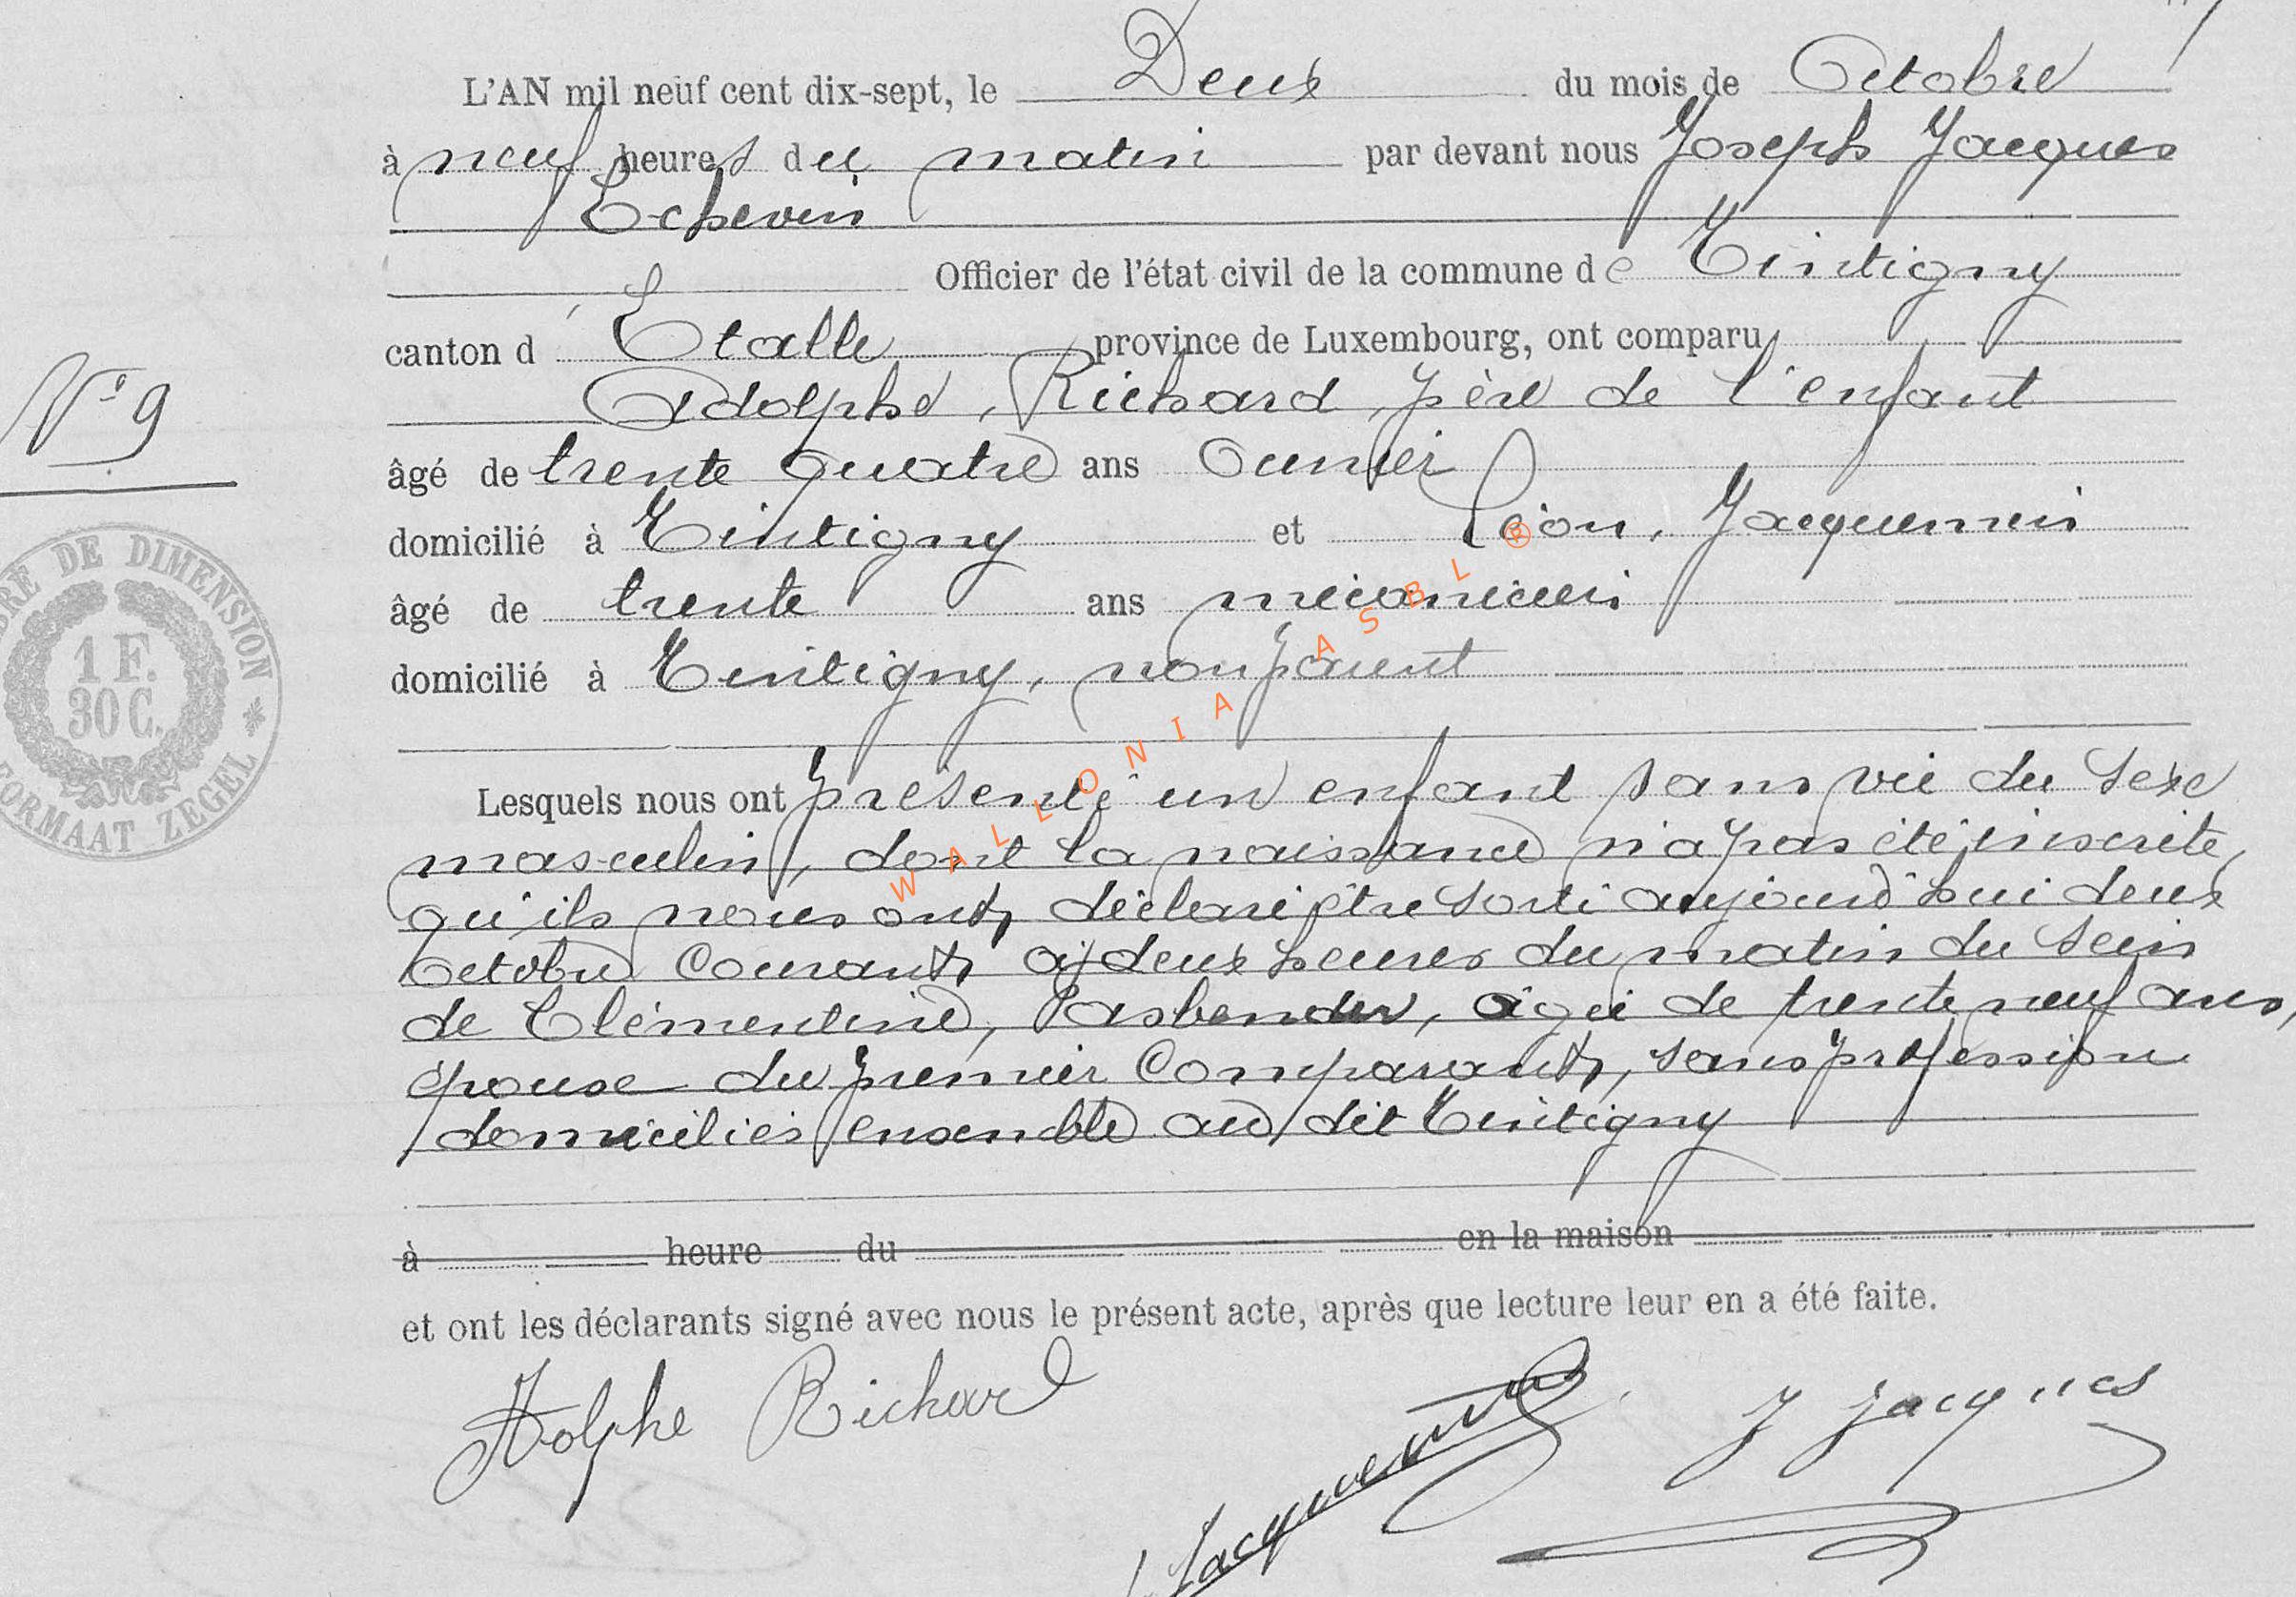 L'AN mil neuf cent dix-sept, le Deux du mois de Octobre
à neuf heures du matin par devant nous Joseph Jacques
Echevin
Officier de l'état civil de la commune de Tintigny
canton d'Etalle province de Luxembourg, ont comparu
Adolphe, Richard, père de l'enfant
N° 9
âgé de trente quatre ans Ouvrier
domicilié à Tintigny et Léon, Jacquemin
âgé de trente ans mécanicien
domicilié à Tintigny, non parent
TIMBRE DE DIMENSION
1 F.
30 C.
FORMAAT ZEGEL
Lesquels nous ont présenté un enfant sans vie du sexe
masculin, dont la naissance n'a pas été inscrite,
qu'ils nous ont déclaré être sorti aujourd'hui deux
octobre courant, à deux heures du matin du sein
de Clémentine, Pasbender, âgée de trente neuf ans,
épouse du premier comparant, sans profession
domiciliés ensemble au dit Tintigny
à heure du en la maison
et ont les déclarants signé avec nous le présent acte, après que lecture leur en a été faite.
Adolphe Richard
Jacquemin
J Jacques
WALLONIA ASBL ®